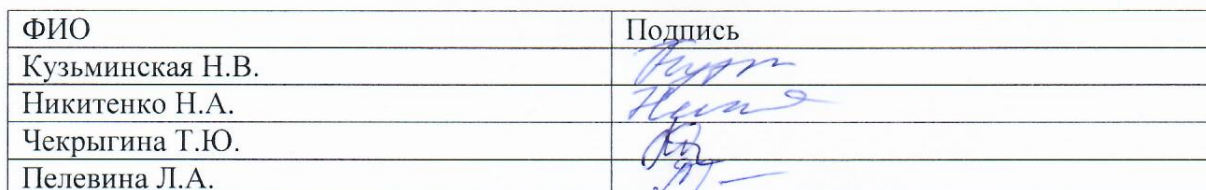 ФИО Подпись
Кузьминская Н.В.
Никитенко Н.А.
Чекрыгина Т.Ю.
Пелевина Л.А.